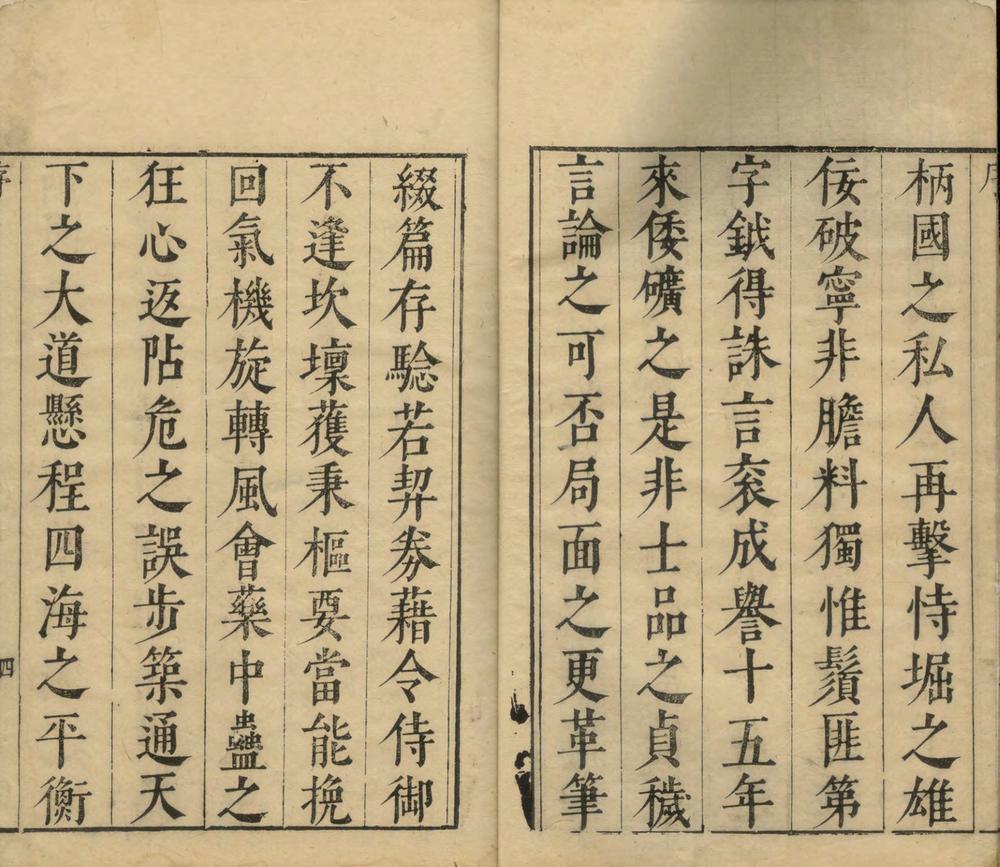 柄國之私人再擊恃堀之雄
佞破寧非膽料獨惟鬚匪第
字鉞得誅言衮成譽十五年
來倭礦之是非士品之貞穢
言論之可否局面之更革筆
綴篇存騐若契劵藉令侍御
不逢坎壈獲秉樞要當能挽
回氣機旋轉風會藥中蠱之
狂心返阽危之誤步築通天
下之大道懸程四海之平衡
四